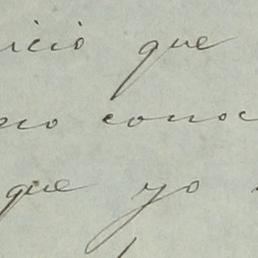 icio que
no conoc
que yo